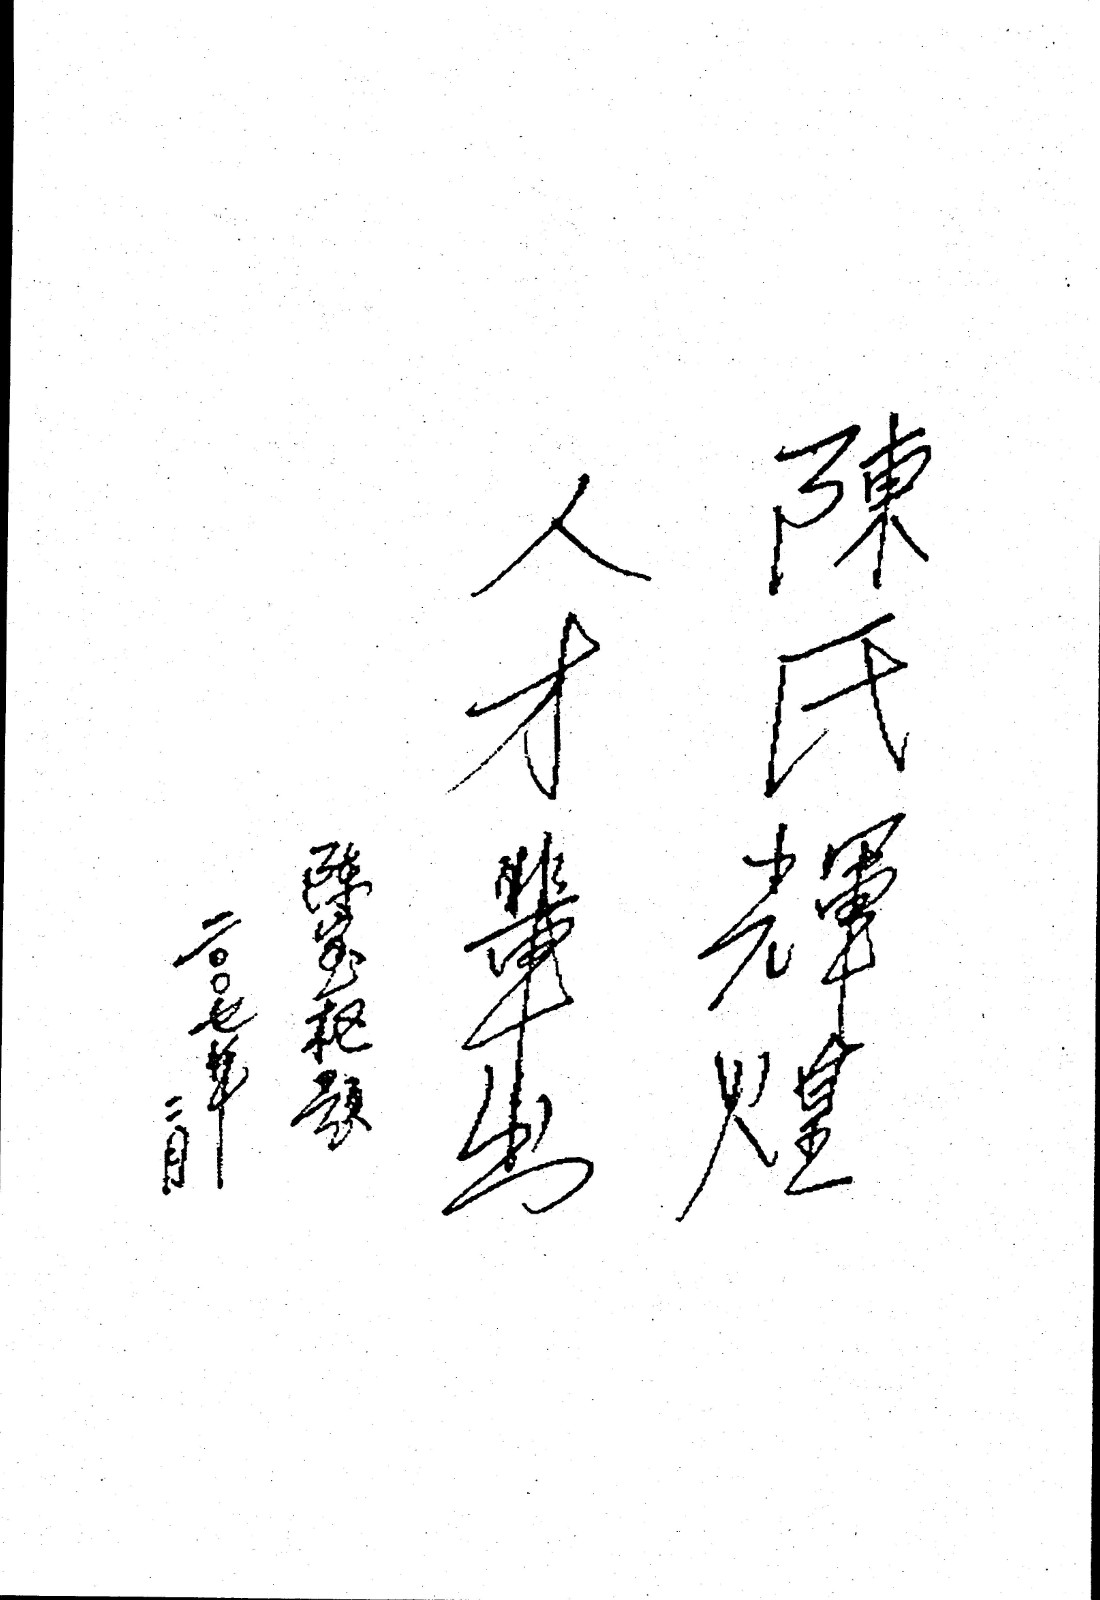 陳氏輝煌
人才輩出
陳宝枢题
二〇〇七年
二月